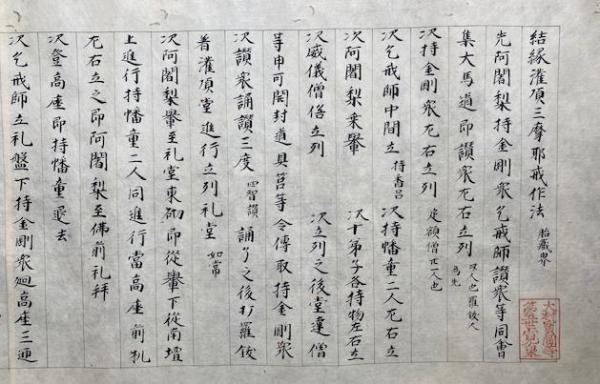 結縁灌頂三摩耶戒作法 胎蔵界
先阿闍梨持金剛衆乞戒師讃衆等同會
集大馬道即讃衆左右立列 人也羅鈸人為先
次持金剛衆左右立列 人也
次乞戒師中間立 次持幡童二人左右立
次阿闍梨乗轝 次十弟子各持物左右立
次威儀僧侶立列 次立列之後堂達僧
等申可開封道具莒等令傳取持金剛衆
次讃衆誦讃三度 四智讃 誦了之後打羅鈸
着灌頂堂進行立列礼堂 如常
次阿闍梨轝至礼堂東砌即從轝下從南壇
上進行持幡童二人同進行當高座前机
左右立之即阿闍梨至佛前礼拜
次登高座即持幡童退去
次乞戒師立礼盤下持金剛衆廻高座三迊